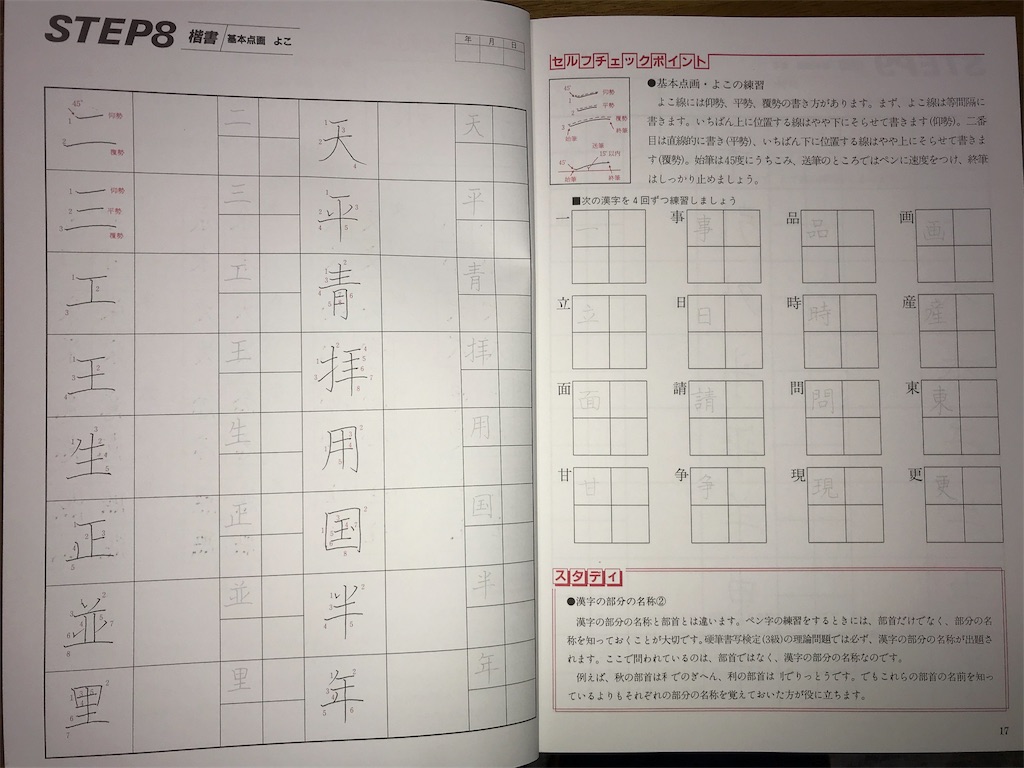 STEP8 楷書 基本点画 よこ
年 月 日
45°
1
二 仰勢
2 覆勢
二
天
天
三 仰勢
平勢
覆勢
三
平
平
工
工
青
青
王
王
拝
拝
生
生
用
用
正
正
国
国
並
並
半
半
里
里
年
年
セルフチェックポイント
45° 仰勢
1
2 平勢
覆勢
3
始筆 終筆
送筆
45° 15°以内
始筆 終筆
●基本点画・よこの練習
よこ線には仰勢、平勢、覆勢の書き方があります。まず、よこ線は等間隔に
書きます。いちばん上に位置する線はやや下にそらせて書きます(仰勢)。二番
目は直線的に書き(平勢)、いちばん下に位置する線はやや上にそらせて書きま
す(覆勢)。始筆は45度にうちこみ、送筆のところではペンに速度をつけ、終筆
はしっかり止めましょう。
■次の漢字を4回ずつ練習しましょう
一 一 事 事 品 品 画 画
立 立 日 日 時 時 産 産
面 面 請 請 問 問 東 東
甘 甘 争 争 現 現 更 更
スタディ
●漢字の部分の名称②
漢字の部分の名称と部首とは違います。ペン字の練習をするときには、部首だけでなく、部分の名
称を知っておくことが大切です。硬筆書写検定(3級)の理論問題では必ず、漢字の部分の名称が出題さ
れます。ここで問われているのは、部首ではなく、漢字の部分の名称なのです。
例えば、秋の部首は禾でのぎへん、利の部首は刂でりっとうです。でもこれらの部首の名前を知っ
ているよりもそれぞれの部分の名称を覚えておいた方が役に立ちます。
17